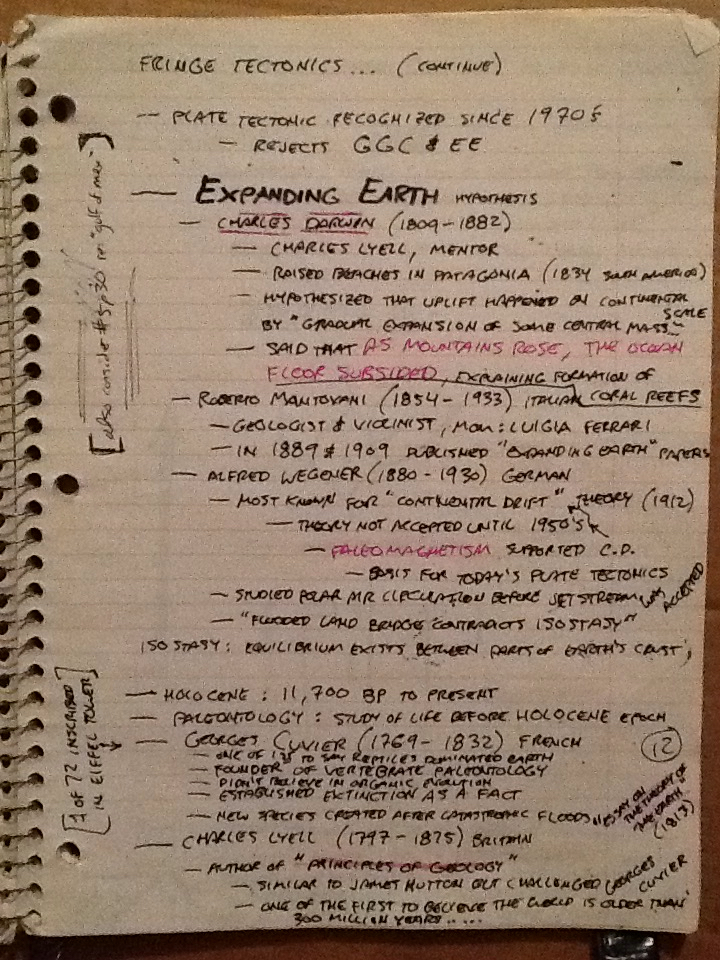 FRINGE TECTONICS... (CONTINUE)
— PLATE TECTONIC RECOGNIZED SINCE 1970's
— REJECTS GGC & EE
— EXPANDING EARTH HYPOTHESIS
— CHARLES DARWIN (1809-1882)
— CHARLES LYELL, MENTOR
— RAISED BEACHES IN PATAGONIA (1834 SOUTH AMERICA)
— HYPOTHESIZED THAT UPLIFT HAPPENED ON CONTINENTAL SCALE
BY "GRADUAL EXPANSION OF SOME CENTRAL MASS"
— SAID THAT AS MOUNTAINS ROSE, THE OCEAN
FLOOR SUBSIDED, EXPLAINING FORMATION OF
CORAL REEFS
— ROBERTO MANTOVANI (1854-1933) ITALIAN
— GEOLOGIST & VIOLINIST, MOM: LUIGIA FERRARI
— IN 1889 & 1909 PUBLISHED "EXPANDING EARTH" PAPERS
— ALFRED WEGENER (1880-1930) GERMAN
— MOST KNOWN FOR "CONTINENTAL DRIFT" THEORY (1912)
— THEORY NOT ACCEPTED UNTIL 1950's
— PALEOMAGNETISM SUPPORTED C.D.
— BASIS FOR TODAY'S PLATE TECTONICS
— STUDIED POLAR AIR CIRCULATION BEFORE JET STREAM WAS ACCEPTED
— "FLOODED LAND BRIDGE CONTRADICTS ISOSTASY"
ISOSTASY: EQUILIBRIUM EXISTS BETWEEN PARTS OF EARTH'S CRUST;
— HOLOCENE: 11,700 BP TO PRESENT
— PALEONTOLOGY: STUDY OF LIFE BEFORE HOLOCENE EPOCH
— GEORGES CUVIER (1769-1832) FRENCH
— ONE OF 1st TO SAY REPTILES DOMINATED EARTH
— FOUNDER OF VERTEBRATE PALEONTOLOGY
— DIDN'T BELIEVE IN ORGANIC EVOLUTION
— ESTABLISHED EXTINCTION AS A FACT
— NEW SPECIES CREATED AFTER CATASTROPHIC FLOODS
"ESSAY ON
THE THEORY OF
THE EARTH"
(1813)
— CHARLES LYELL (1797-1875) BRITAIN
— AUTHOR OF "PRINCIPLES OF GEOLOGY"
— SIMILAR TO JAMES HUTTON BUT CHALLENGED GEORGES CUVIER
— ONE OF THE FIRST TO BELIEVE THE WORLD IS OLDER THAN
300 MILLION YEARS.....
12
[also consider #5p30 re: "gulf of mex"]
[1 OF 72 INSCRIBED
IN EIFFEL TOWER]